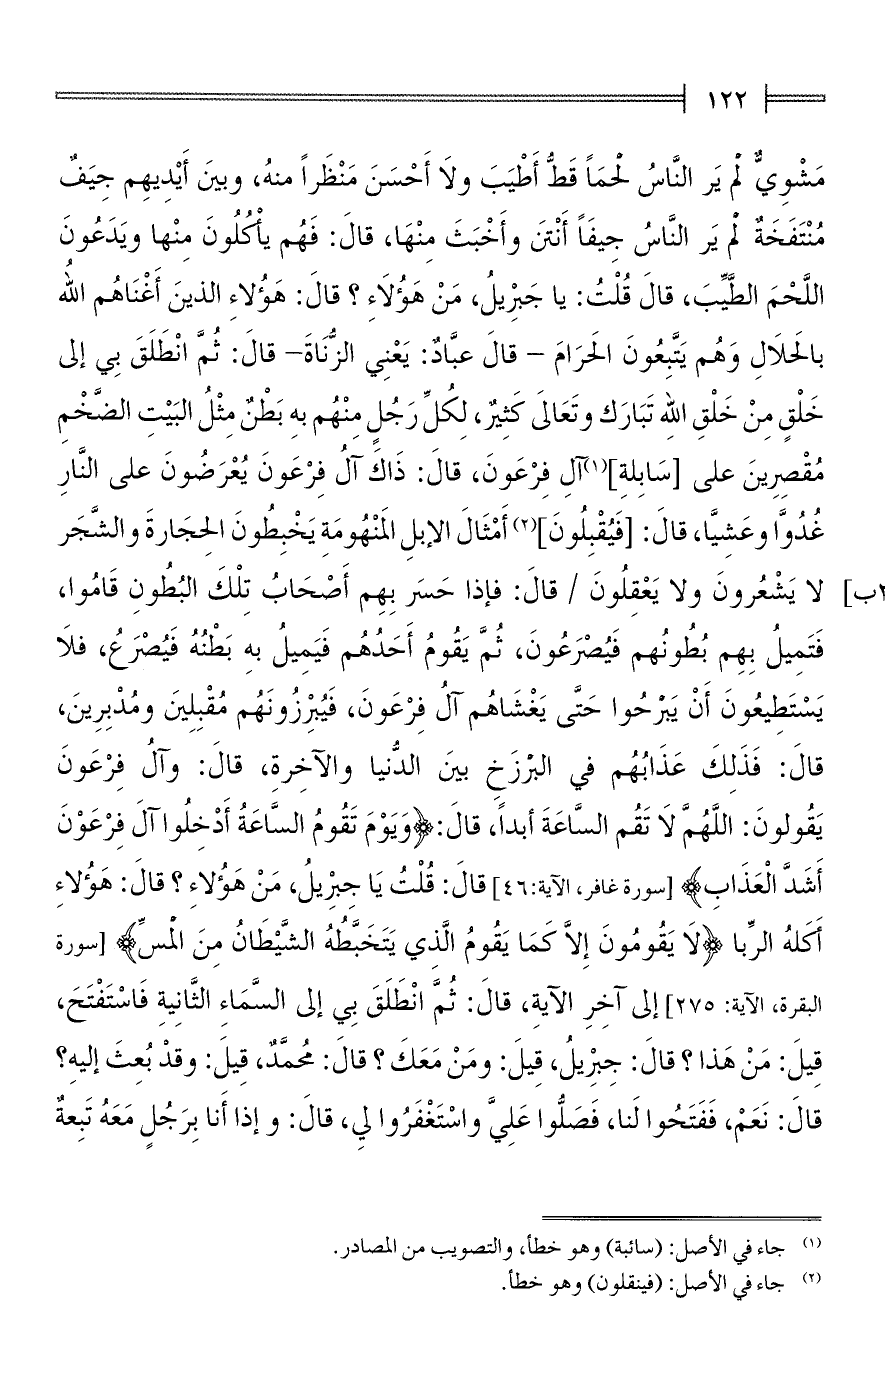 ١٢٢
مَشْوِيٌّ لْم يَر النَّاسُ لْحمَاً قَطُّ أَطْيَبَ ولَا أَحْسَنَ مَنْظَراً منهُ، وبينَ أَيْدِيهِم جِيَفٌ
مُنْتَفَخَةٌ لْم يَر النَّاسُ جيفَاً أَنْتَن وأَخْبَثَ مِنْهَا، قالَ: فَهُم يأْكُلُونَ مِنْها ويَدَعُونَ
اللَّحْمَ الطَّيِّبَ، قالَ قُلْتُ: يا جَبْرِيلُ، مَنْ هَؤُلَاءِ ؟ قالَ: هَؤُلاءِ الذينَ أَغْنَاهُم اللهُ
بالَحلَالِ وَهُم يَتَّبِعُونَ الَحرَامَ – قالَ عبَّادٌ: يَعْنِي الزُّنَاةَ– قالَ: ثُمَّ انْطَلَقَ بي إلى
خَلْقٍ مِنْ خَلْقِ اللهِ تَبَارَك وتَعَالَى كَثيرٌ، لِكُلِّ رَجُلٍ مِنْهُم به بَطْنٌ مِثْلُ البَيْتِ الضَّخْمِ
مُقْصِرِينَ على [سَابِلةِ](١)آلِ فِرْعَونَ، قالَ: ذَاكَ آلُ فِرْعَونَ يُعْرَضُونَ على النَّارِ
غُدُوَّا وعَشِيَّا، قالَ: [فَيُقْبِلُونَ](٢)أَمْثَالَ الإبلِ المَنْهُومَةِ يَخْبِطُونَ الحِجَارةَ والشَّجَر
٢ب] لا يَشْعُرونَ ولا يَعْقلُونَ / قالَ: فإذا حَسَر بِهِم أَصْحَابُ تِلْكَ البُطُونِ قَامُوا،
فَتَمِيلُ بِهِم بُطُونُهم فَيُصْرَعُونَ، ثُمَّ يَقُومُ أَحَدُهُم فَيَمِيلُ به بَطْنُهُ فَيُصْرَعُ، فلَا
يَسْتَطِيعُونَ أَنْ يَبْرَحُوا حَتَّى يَغْشَاهُم آلُ فِرْعَونَ، فَيُبْرِزُونَهُم مُقْبِلِينَ ومُدْبِرِينَ،
قالَ: فَذَلِكَ عَذَابُهُم في البَرْزَخِ بينَ الدُّنيا والآخرةِ، قالَ: وآلُ فِرْعَونَ
يَقُولونَ: اللَّهُمَّ لَا تَقُم السَّاعَةَ أبداً، قالَ:﴿وَيَوْمَ تَقُومُ السَّاعَةُ أَدْخِلُوا آلَ فِرْعَوْنَ
أَشَدَّ الْعَذَابِ﴾ [سورة غافر، الآية:٤٦] قالَ: قُلْتُ يَا جِبْرِيلُ، مَنْ هَؤُلاءِ ؟ قالَ: هَؤُلاءِ
أَكَلهُ الرِّبا ﴿لَا يَقُومُونَ إلاَّ كَمَا يَقُومُ الَّذي يَتَخَبَّطُهُ الشَّيْطَانُ مِنَ الْمَسِّ﴾ [سورة
البقرة، الآية: ٢٧٥] إلى آخرِ الآيةِ، قالَ: ثُمَّ انْطَلَقَ بي إلى السَّمَاءِ الثَّانيةِ فَاسْتَفْتَحَ،
قيلَ: مَنْ هَذا ؟ قالَ: جِبْرِيلُ، قيلَ: ومَنْ مَعَكَ ؟ قالَ: مُحمَّدٌ، قيلَ: وقدْ بُعِثَ إليهِ؟
قالَ: نَعَمْ، فَفَتَحُوا لَنا، فَصَلُّوا عَلِيَّ واسْتَغْفَرُوا لِي، قالَ: وإذا أَنا بِرَجُلٍ مَعَهُ تَبِعةٌ
(١) جاء في الأصل: (سائبة) وهو خطأ، والتصويب من المصادر.
(٢) جاء في الأصل: (فينقلون) وهو خطأ.